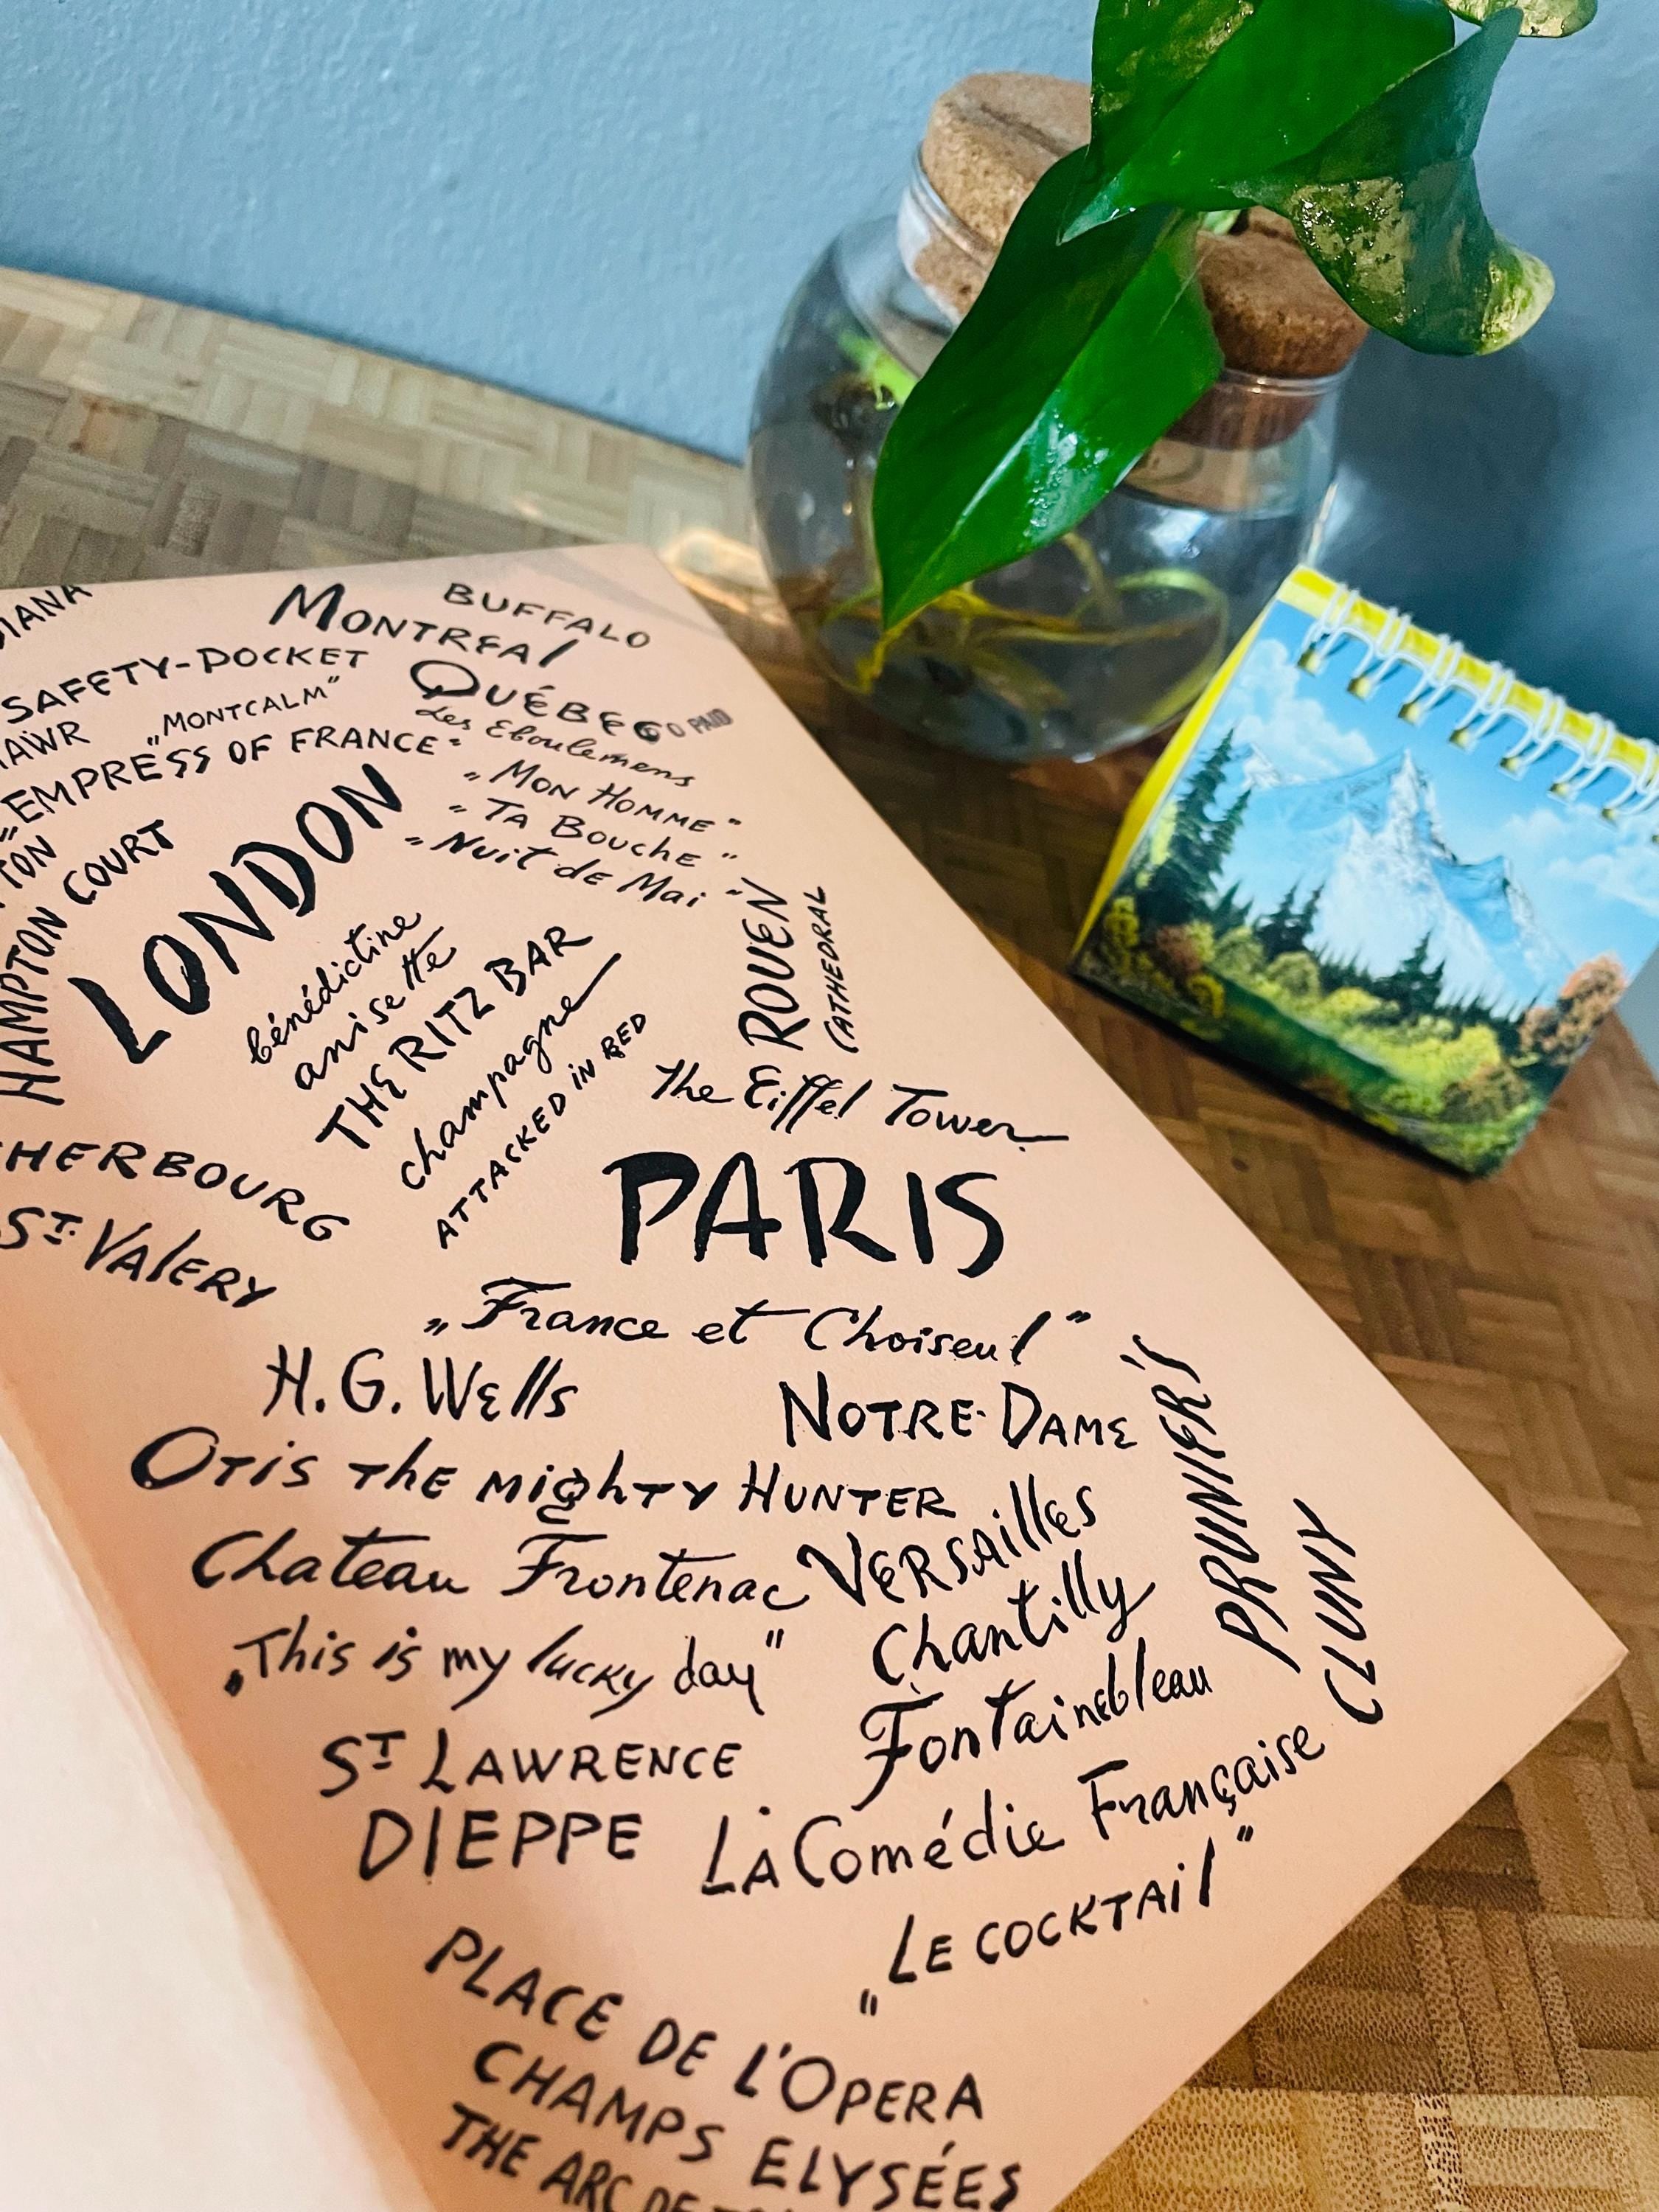 BUFFALO
MONTREAL
SAFETY-POCKET
QUÉBEC
PAID
„MONTCALM"
Les Eboulemens
„EMPRESS OF FRANCE"
„MON HOMME"
„TA BOUCHE"
„Nuit de Mai"
HAMPTON COURT
LONDON
bénédictine
anisette
THE RITZ BAR
champagne
ATTACKED IN BED
ROUEN
CATHEDRAL
The Eiffel Tower
PARIS
HERBOURG
ST VALERY
„France et Choiseul"
H.G. Wells
NOTRE-DAME
PRUNIER'S
OTIS THE MIGHTY HUNTER
VERSAILLES
CLUNY
Chateau Frontenac
Chantilly
„This is my lucky day"
Fontainebleau
ST LAWRENCE
DIEPPE
LA Comédie Française
„LE COCKTAIL"
PLACE DE L'OPERA
CHAMPS ELYSÉES
THE ARC DE